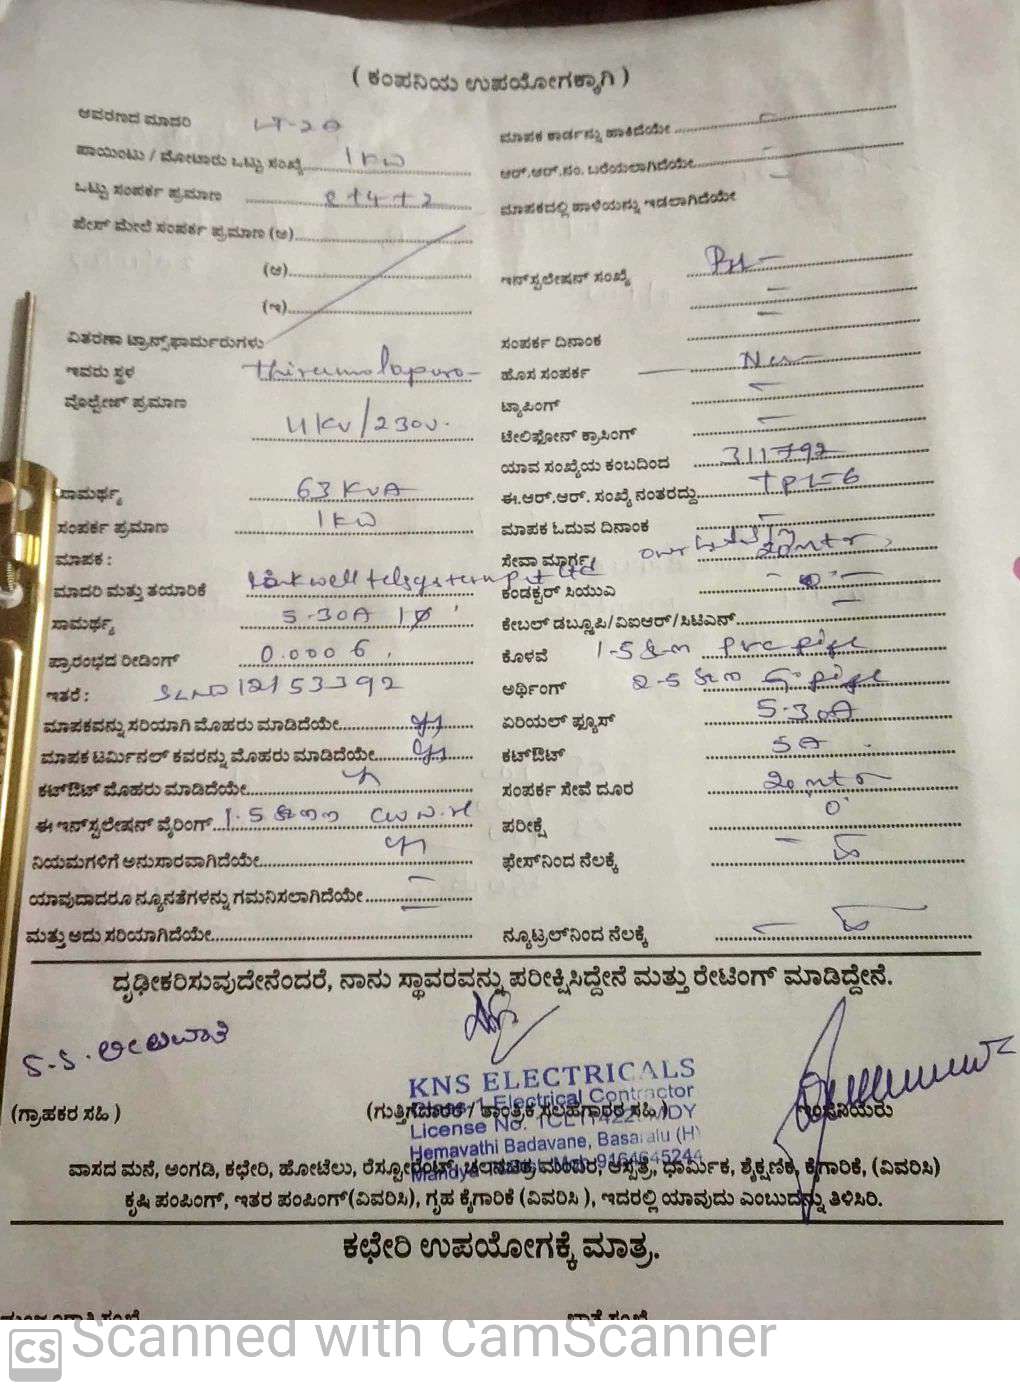 ( ಕಂಪನಿಯ ಉಪಯೋಗಕ್ಕಾಗಿ )
ಆವರಣದ ಮಾದರಿ LT-2A
ಪಾಯಿಂಟು / ಮೋಟಾರು ಒಟ್ಟು ಸಂಖ್ಯೆ 1KW
ಒಟ್ಟು ಸಂಪರ್ಕ ಪ್ರಮಾಣ 8+4+2
ಫೇಸ್ ಮೇಲೆ ಸಂಪರ್ಕ ಪ್ರಮಾಣ (ಅ)
(ಆ)
(ಇ)
ವಿತರಣಾ ಟ್ರಾನ್ಸ್‌ಫಾರ್ಮರುಗಳು
ಇವರು ಸ್ಥಳ
ವೊಲ್ಟೇಜ್ ಪ್ರಮಾಣ
11KV/230V.
ಸಾಮರ್ಥ್ಯ 63 KVA
ಸಂಪರ್ಕ ಪ್ರಮಾಣ 1KW
ಮಾಪಕ :
ಮಾದರಿ ಮತ್ತು ತಯಾರಿಕೆ
ಸಾಮರ್ಥ್ಯ 5-30A 1Ø
ಪ್ರಾರಂಭದ ರೀಡಿಂಗ್ 0.0006
ಇತರೆ : SLNO 12153392
ಮಾಪಕವನ್ನು ಸರಿಯಾಗಿ ಮೊಹರು ಮಾಡಿದೆಯೇ
ಮಾಪಕ ಟರ್ಮಿನಲ್ ಕವರನ್ನು ಮೊಹರು ಮಾಡಿದೆಯೇ
ಕಟ್‌ಔಟ್ ಮೊಹರು ಮಾಡಿದೆಯೇ
ಈ ಇನ್‌ಸ್ಟಲೇಷನ್ ವೈರಿಂಗ್
ನಿಯಮಗಳಿಗೆ ಅನುಸಾರವಾಗಿದೆಯೇ
ಯಾವುದಾದರೂ ನ್ಯೂನತೆಗಳನ್ನು ಗಮನಿಸಲಾಗಿದೆಯೇ
ಮತ್ತು ಅದು ಸರಿಯಾಗಿದೆಯೇ
ಮಾಪಕ ಕಾರ್ಡನ್ನು ಹಾಕಿದೆಯೇ
ಆರ್.ಆರ್.ನಂ. ಬರೆಯಲಾಗಿದೆಯೇ
ಮಾಪಕದಲ್ಲಿ ಹಾಳೆಯನ್ನು ಇಡಲಾಗಿದೆಯೇ
ಇನ್‌ಸ್ಟಲೇಷನ್ ಸಂಖ್ಯೆ
ಸಂಪರ್ಕ ದಿನಾಂಕ
ಹೊಸ ಸಂಪರ್ಕ New
ಟ್ಯಾಪಿಂಗ್
ಟೇಲಿಫೋನ್ ಕ್ರಾಸಿಂಗ್
ಯಾವ ಸಂಖ್ಯೆಯ ಕಂಬದಿಂದ 311792
ಈ.ಆರ್.ಆರ್. ಸಂಖ್ಯೆ ನಂತರದ್ದು TPL-6
ಮಾಪಕ ಓದುವ ದಿನಾಂಕ
ಸೇವಾ ಮಾರ್ಗ 20mtr
ಕಂಡಕ್ಟರ್ ಸಿಯುಎ
ಕೇಬಲ್ ಡಬ್ಲ್ಯೂಪಿ/ವಿಐಆರ್/ಸಿಟಿಎನ್
ಕೊಳವೆ pvc pipe
ಅರ್ಥಿಂಗ್
ಏರಿಯಲ್ ಫ್ಯೂಸ್ 5-30A
ಕಟ್‌ಔಟ್ 5A
ಸಂಪರ್ಕ ಸೇವೆ ದೂರ 20mtr
ಪರೀಕ್ಷೆ 0
ಫೇಸ್‌ನಿಂದ ನೆಲಕ್ಕೆ
ನ್ಯೂಟ್ರಲ್‌ನಿಂದ ನೆಲಕ್ಕೆ
ದೃಢೀಕರಿಸುವುದೇನೆಂದರೆ, ನಾನು ಸ್ಥಾವರವನ್ನು ಪರೀಕ್ಷಿಸಿದ್ದೇನೆ ಮತ್ತು ರೇಟಿಂಗ್ ಮಾಡಿದ್ದೇನೆ.
S.S. ಲೀಲಾವತಿ
KNS ELECTRICALS
Class-1 Electrical Contractor
(ಗ್ರಾಹಕರ ಸಹಿ ) (ಗುತ್ತಿಗೆದಾರಕ / ತಾಂತ್ರಿಕ ಸಲಹೆಗಾರರ ಸಹಿ ) ಇಂಜಿನಿಯರು
License No.
Hemavathi Badavane, Basaralu (H)
Mandya 9164645244
ವಾಸದ ಮನೆ, ಅಂಗಡಿ, ಕಛೇರಿ, ಹೋಟೆಲು, ರೆಸ್ಟೋರೆಂಟ್, ಚಲನಚಿತ್ರ ಮಂದಿರ, ಆಸ್ಪತ್ರೆ, ಧಾರ್ಮಿಕ, ಶೈಕ್ಷಣಿಕ, ಕೈಗಾರಿಕೆ, (ವಿವರಿಸಿ)
ಕೃಷಿ ಪಂಪಿಂಗ್, ಇತರ ಪಂಪಿಂಗ್(ವಿವರಿಸಿ), ಗೃಹ ಕೈಗಾರಿಕೆ (ವಿವರಿಸಿ ), ಇದರಲ್ಲಿ ಯಾವುದು ಎಂಬುದನ್ನು ತಿಳಿಸಿರಿ.
ಕಛೇರಿ ಉಪಯೋಗಕ್ಕೆ ಮಾತ್ರ.
CS Scanned with CamScanner